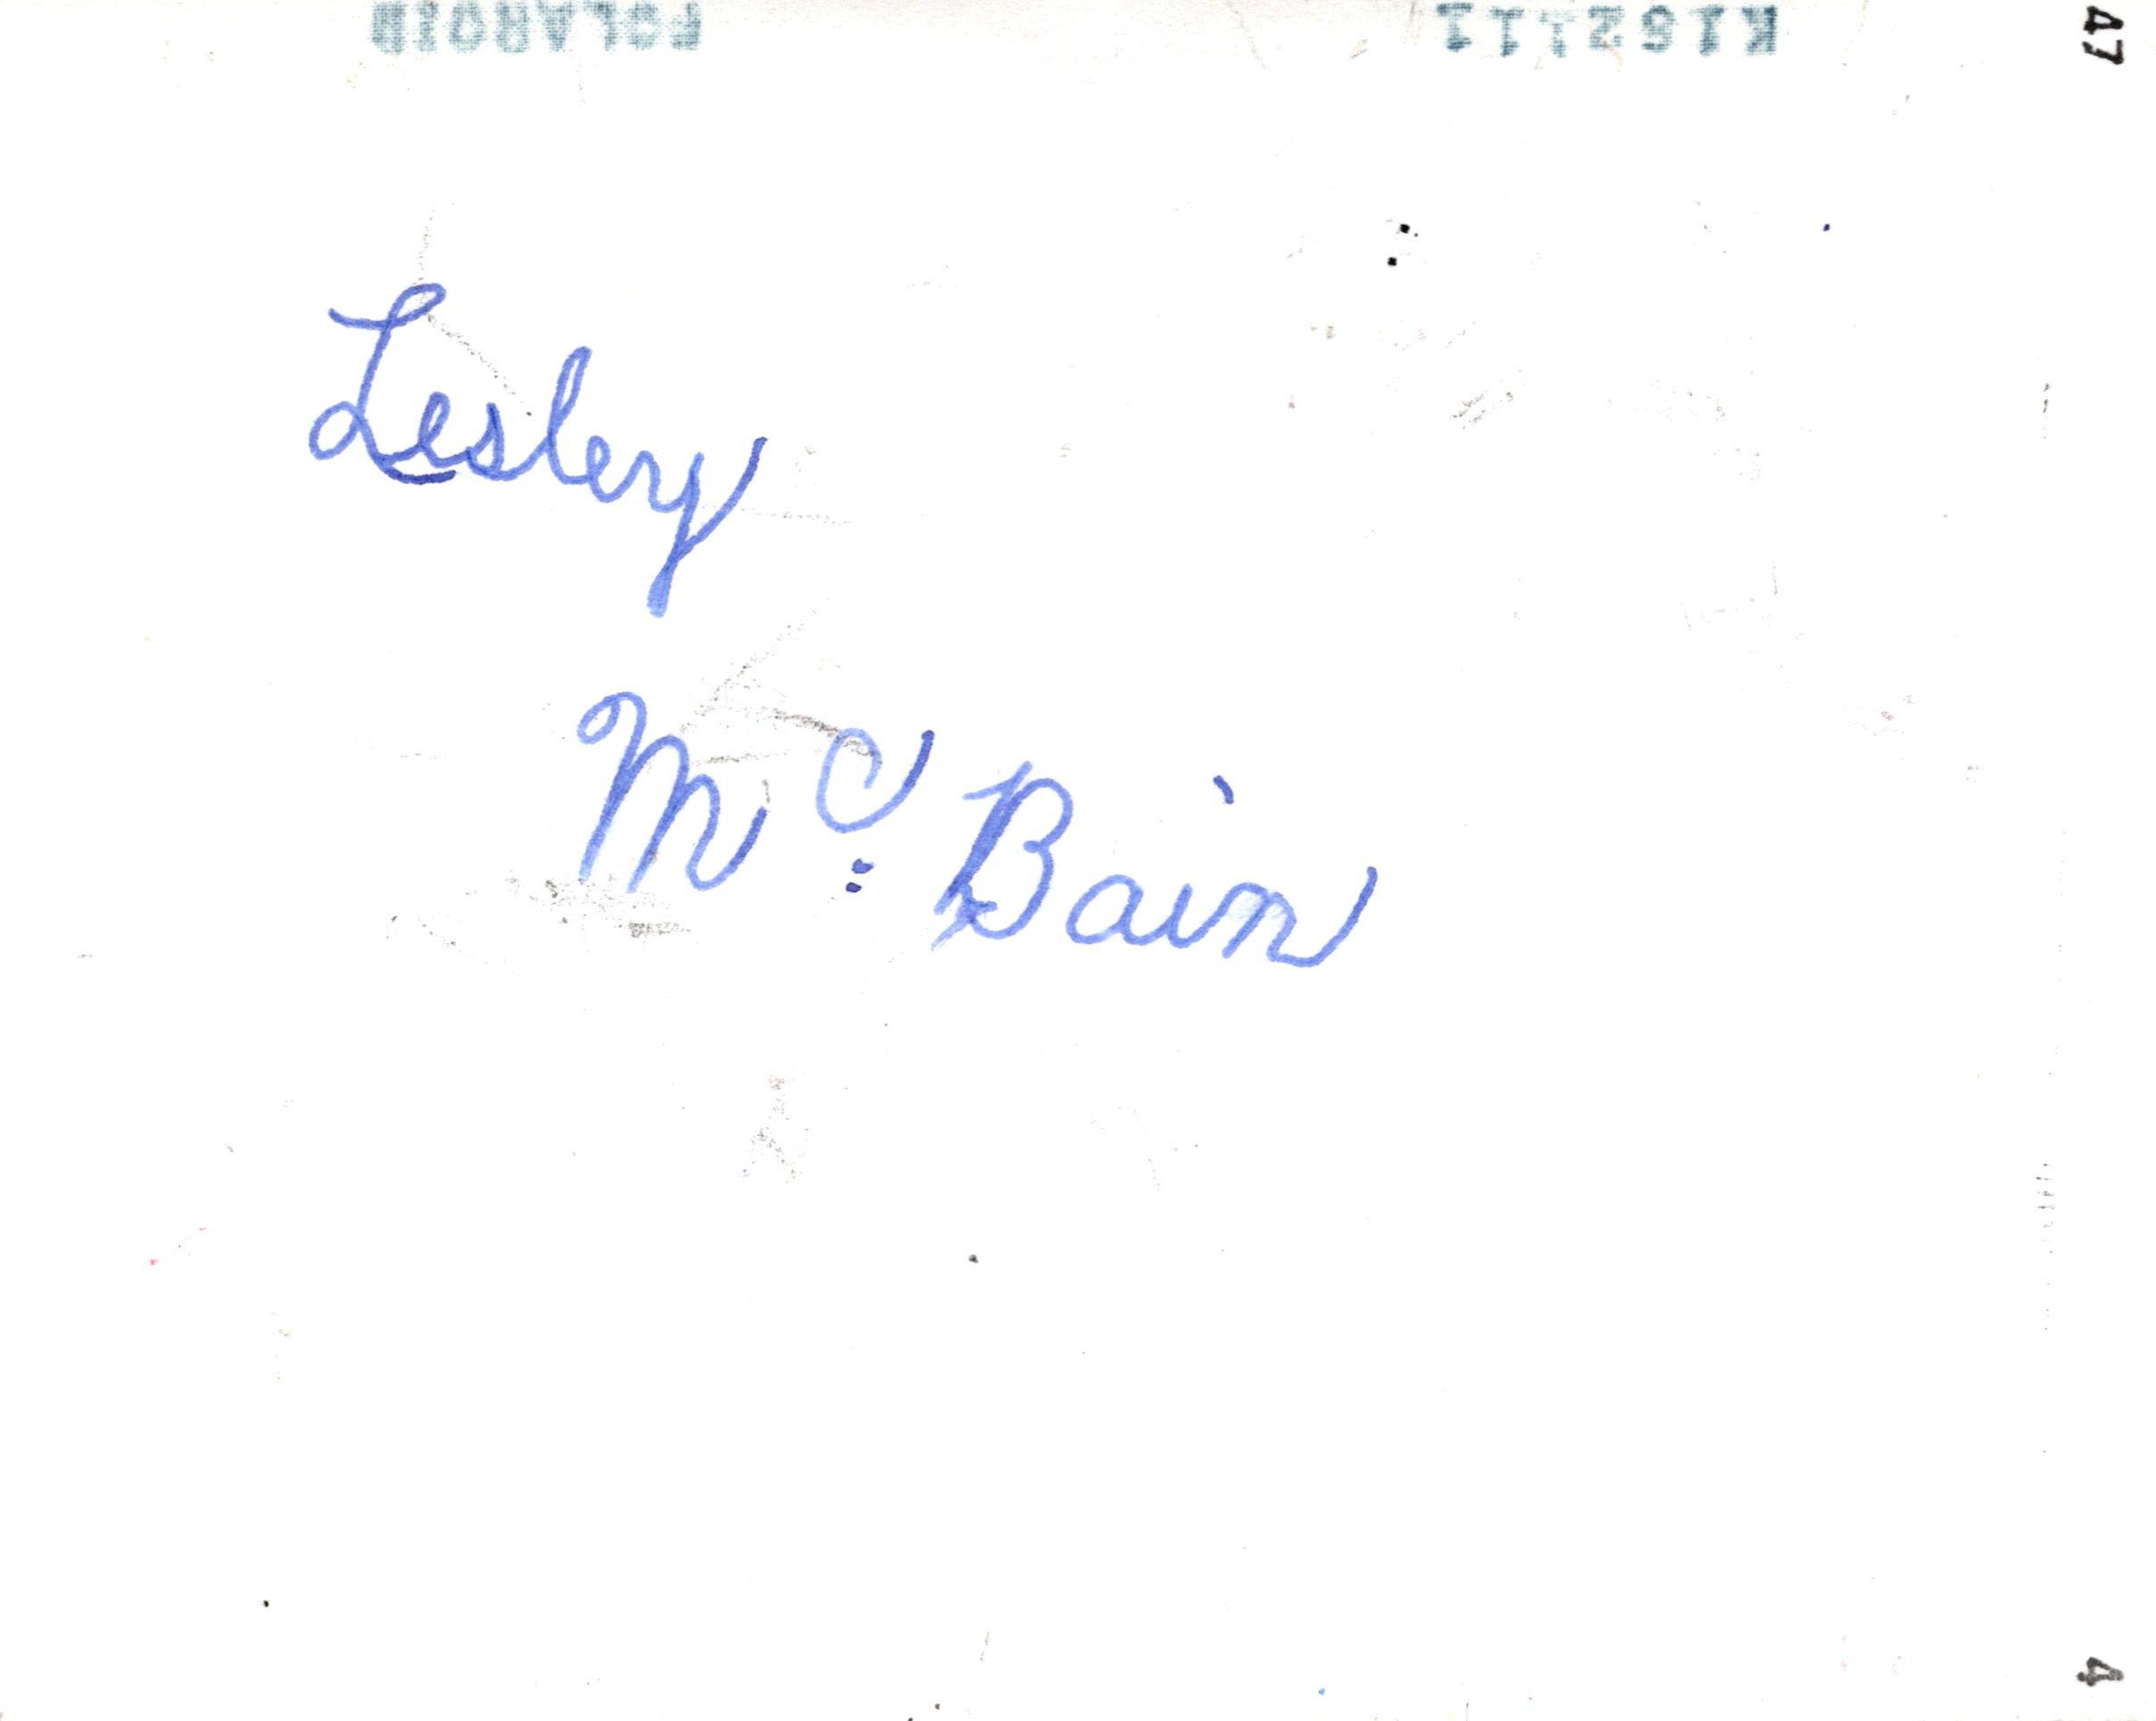 POLAROID K162111
A7
Lesley
Mc Bain
4